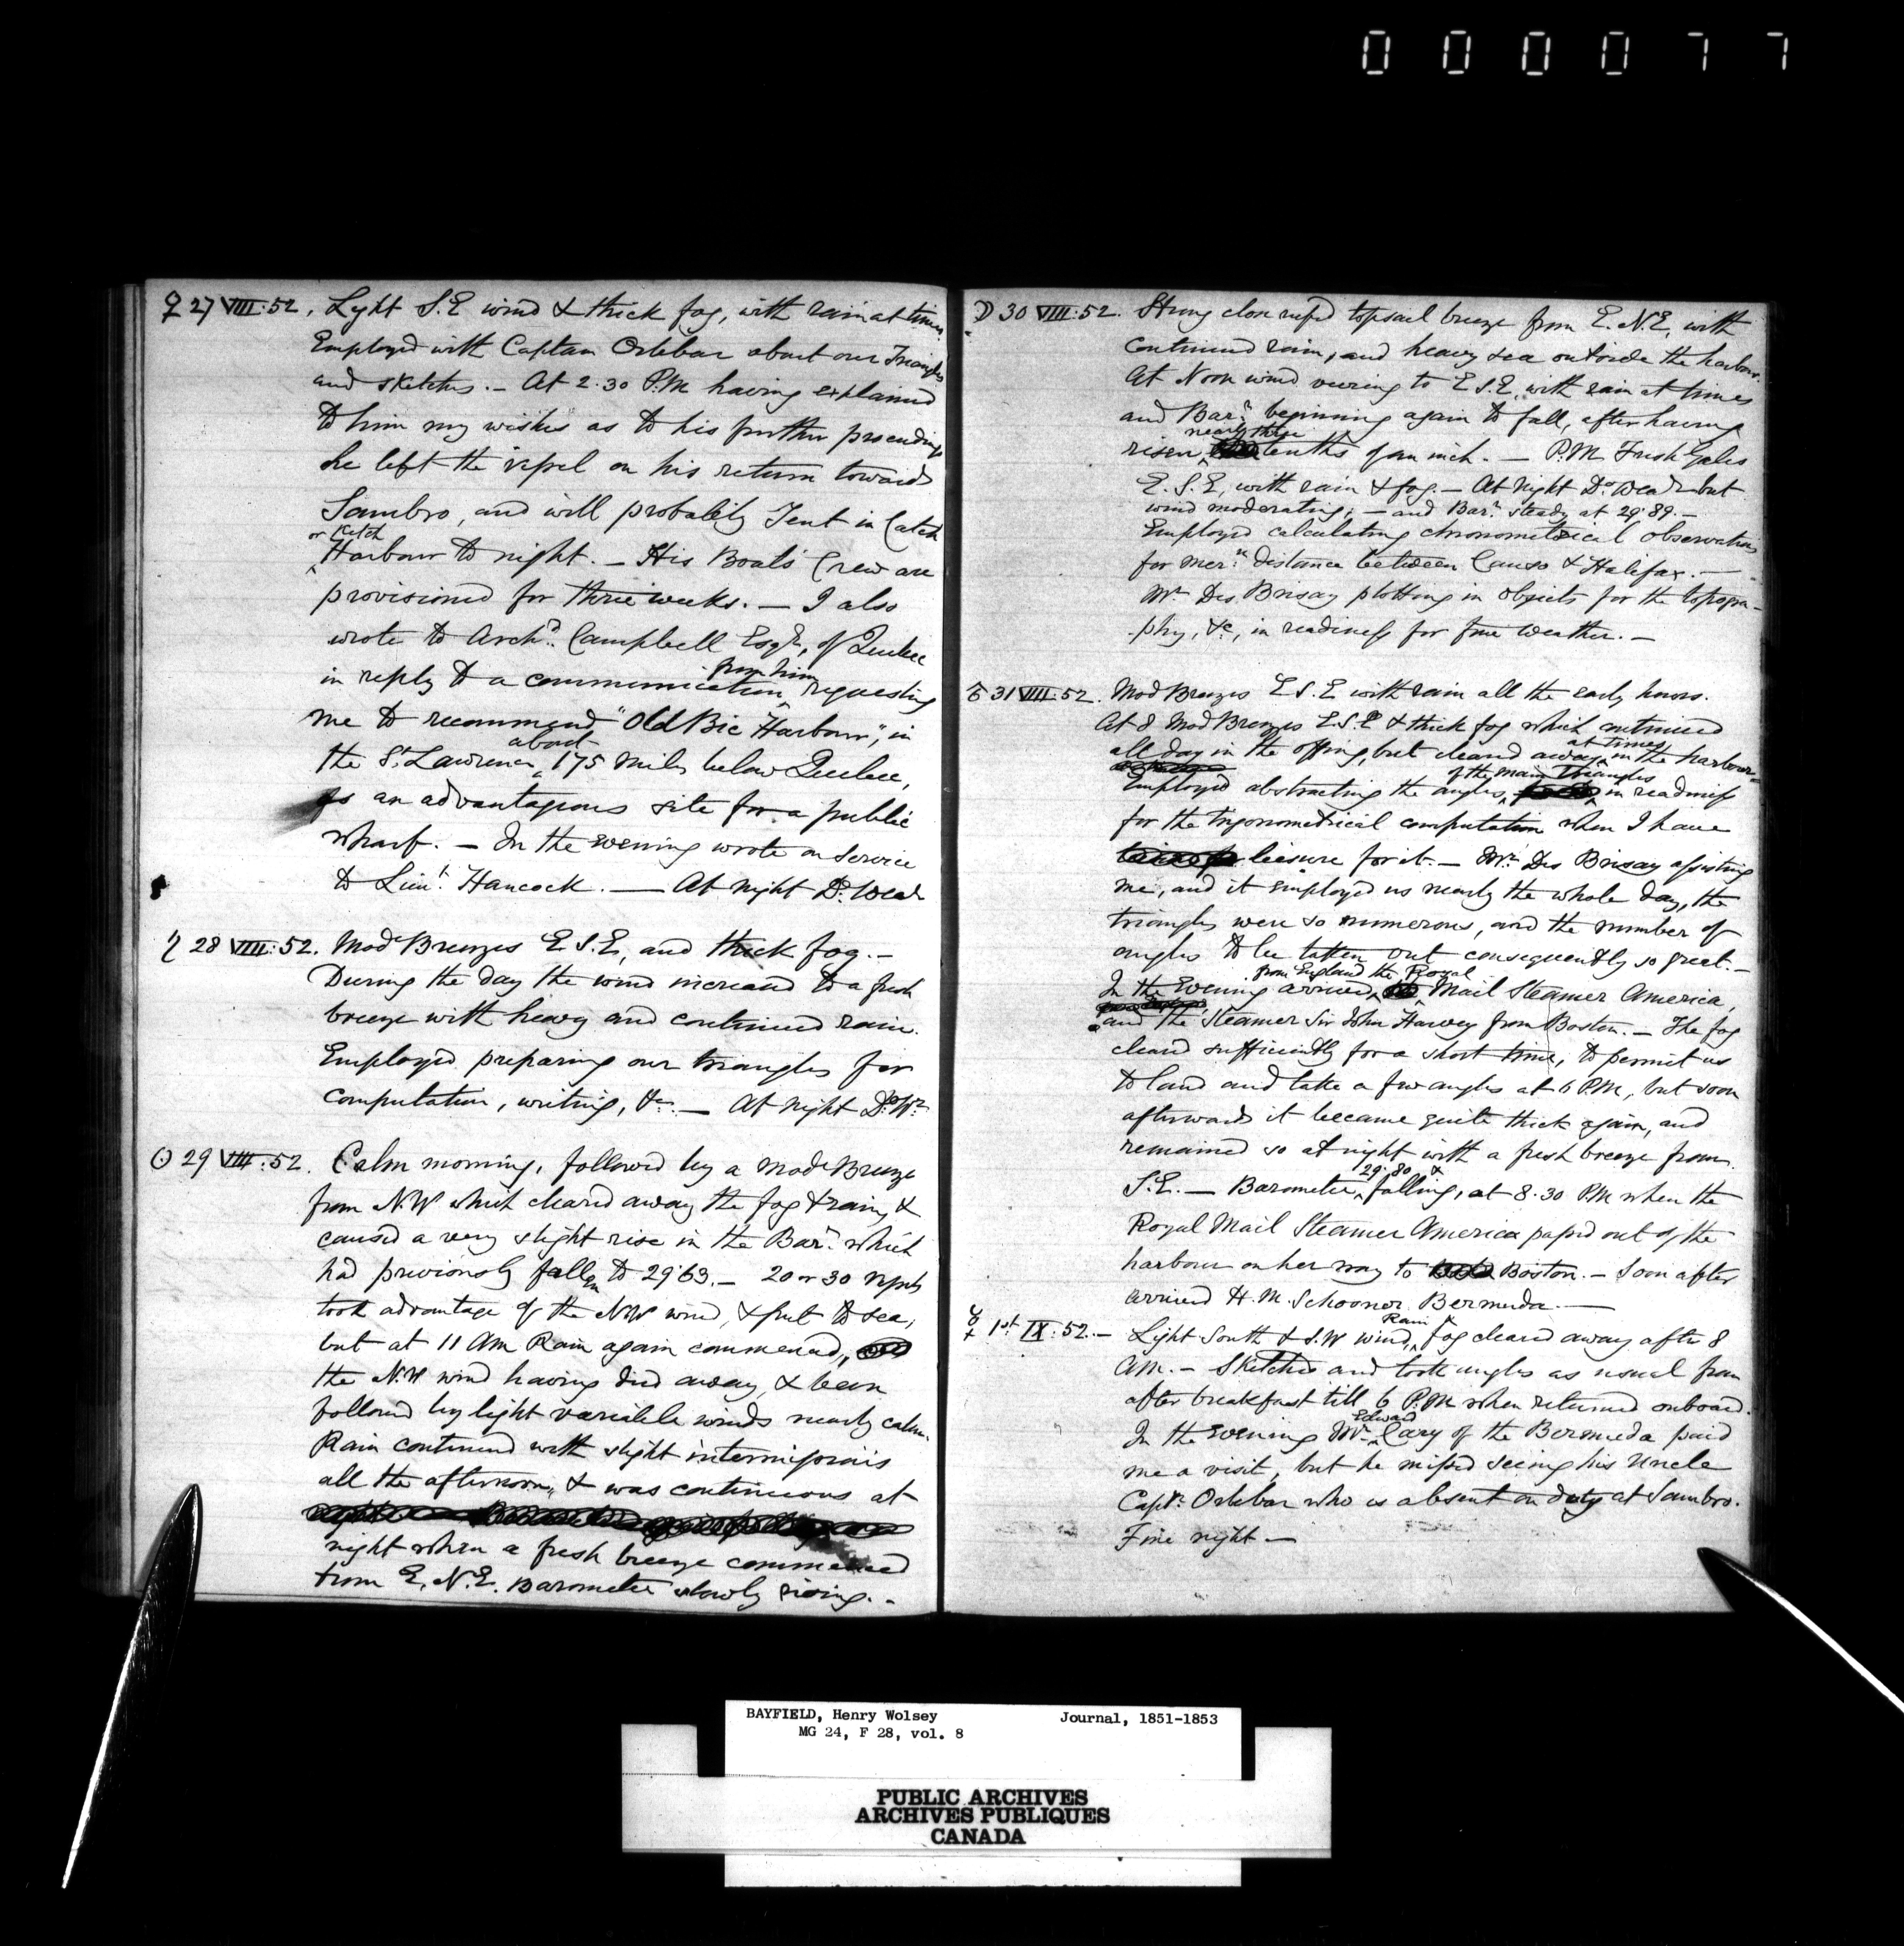 000077
♀ 27 VIII:52. Light S.E wind & thick fog, with rain at times.
Employed with Captan Orlebar about our Triangles
and sketches. - At 2.30 P.M having explained
to him my wishes as to his further proceedings
he left the vessel on his return towards
Sambro, and will probably Tent in Catch
or Ketch
Harbour to night. - His Boats Crew are
provisioned for three weeks. - I also
wrote to Archd. Campbell Esqr, of Quebec
in reply to a communication from him requesting
me to recommend "Old Bic Harbour", in
the St. Lawrence about 175 miles below Quebec,
as an advantageous site for a public
wharf. - In the evening wrote on Service
to Lieut. Hancock. — At night Do. Wear
♄ 28 VIII:52. Mode Breezes E S.E, and thick fog. -
During the day the wind increased to a fresh
breeze with heavy and continued rain.
Employed preparing our triangles for
computation, writing, &c. — At night Do. Wr.
☉ 29 VIII:52. Calm morning, followed by a Mode Breeze
from N.W which cleared away the fog & rain, &
caused a very slight rise in the Barr. which
had previously fallen to 29.63. - 20 or 30 vessels
took advantage of the NW wind, & put to sea,
but at 11 AM Rain again commenced,
the N.W wind having died away, & been
followed by light variable winds nearly calm.
Rain continued with slight intermissions
all the afternoon, & was continuous at
night when a fresh breeze commenced
from E.N.E. Barometer slowly rising. -
☽ 30 VIII:52. Strong close reefed topsail breeze from E.N.E, with
continued rain, and heavy sea outside the harbour.
At Noon wind veering to E S.E, with rain at times
and Barr. beginning again to fall, after having
risen nearly three tenths of an inch. — P.M Fresh Gales
E.S.E, with rain & fog. - At night Do. Wear but
wind moderating; - and Barr. steady at 29.89. -
Employed calculating chronometrical observations
for mern. distance between Canso & Halifax. —
Mr Des Brisay plotting in objects for the topogra-
phy, &c, in readiness for fine weather. -
♂ 31 VIII:52. Mod Breezes E S.E with rain all the early hours.
At 8 Mod Breezes E.S.E & thick fog which continued
all day in the offing, but cleared away at times in the harbour. -
Employed abstracting the angles of the main triangles in readiness
for the trigonometrical computation when I have
leisure for it. - Mr. Des Brisay assisting
me, and it employed us nearly the whole day, the
triangles were so numerous, and the number of
angles to be taken out consequently so great. -
In the Evening arrived from England the Royal Mail Steamer America,
and the Steamer Sir John Harvey from Boston. - The fog
cleared sufficiently for a short time, to permit us
to land and take a few angles at 6 P.M, but soon
afterwards it became quite thick again, and
remained so at night with a fresh breeze from
S.E. — Barometer 29.80 & falling, at 8.30 PM when the
Royal Mail Steamer America passed out of the
harbour on her way to Boston. - Soon after
arrived H.M. Schooner Bermuda. —
☿ 1st IX:52. - Light South & S.W wind, Rain & fog cleared away after 8
AM. - Sketched and took angles as usual from
after breakfast till 6 P.M when returned onboard.
In the evening Mr. Edward Cary of the Bermuda paid
me a visit, but he missed seeing his Uncle
Captn. Orlebar who is absent on duty at Sambro.
Fine night —
BAYFIELD, Henry Wolsey Journal, 1851-1853
MG 24, F 28, vol. 8
PUBLIC ARCHIVES
ARCHIVES PUBLIQUES
CANADA